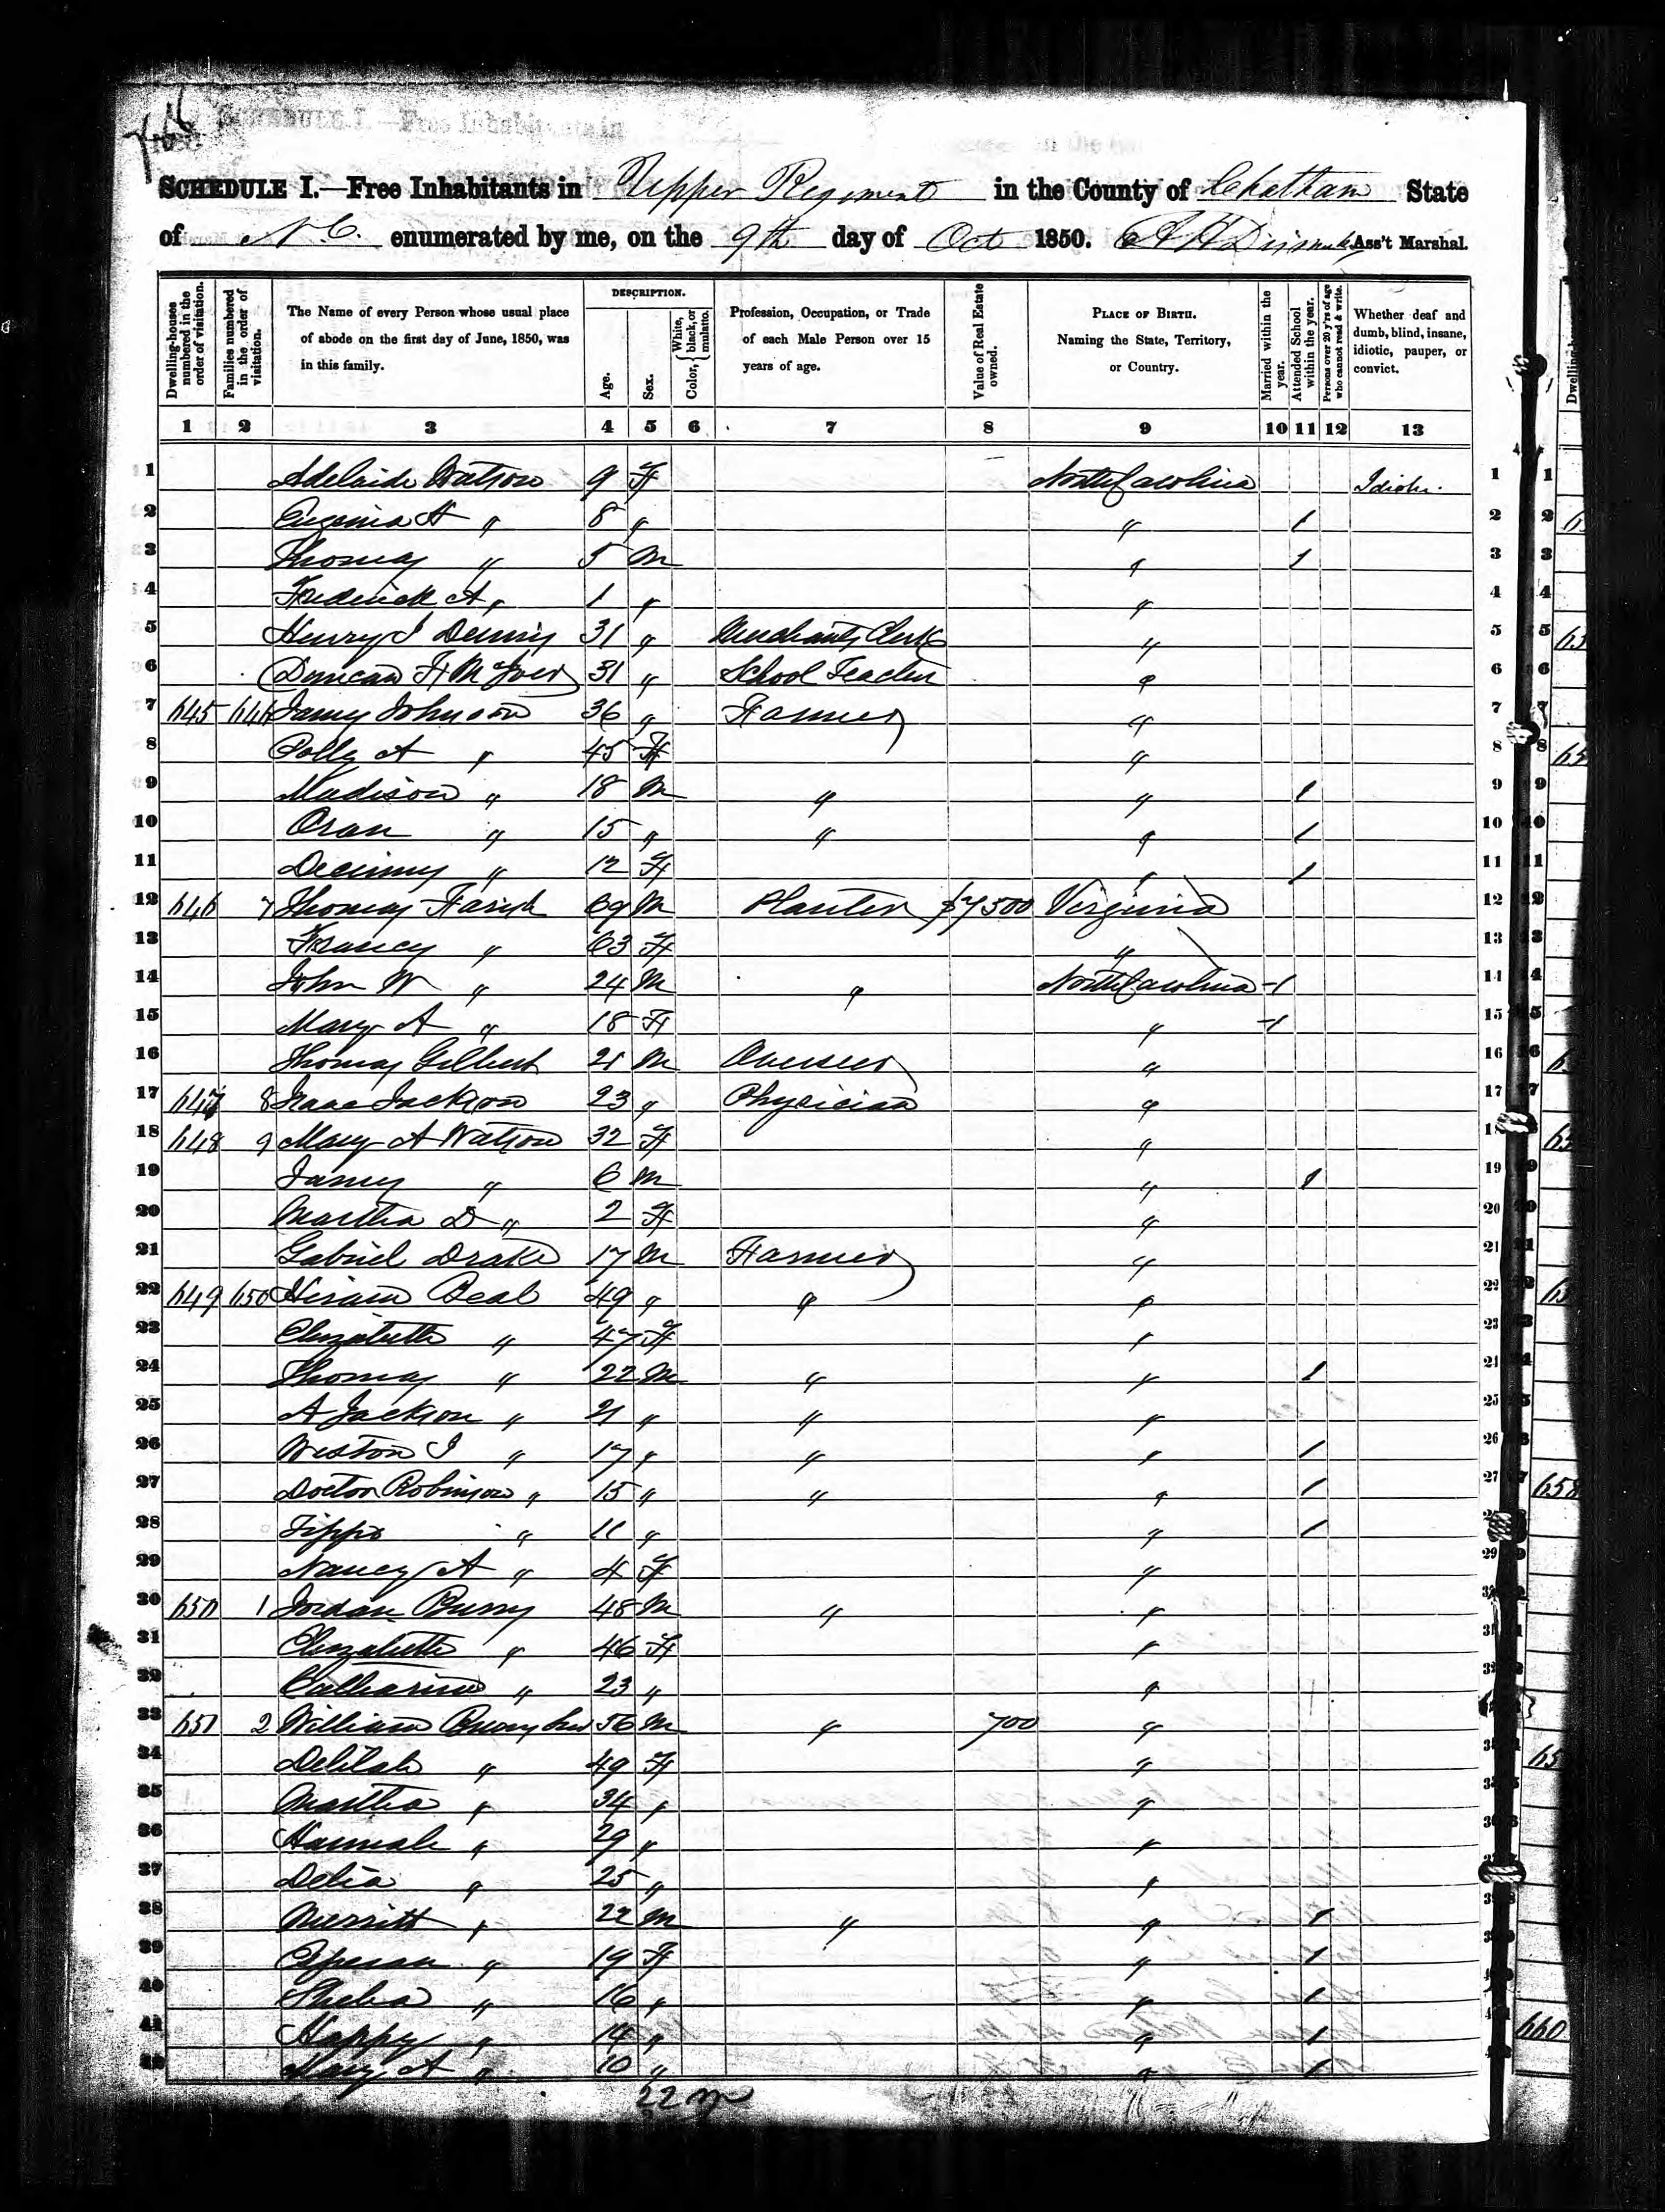 SCHEDULE I.—Free Inhabitants in Upper Regiment in the County of Chatham State
of N C. enumerated by me, on the 9th day of Oct 1850. Ass't Marshal.
Dwelling-houses numbered in the order of visitation.
Families numbered in the order of visitation.
The Name of every Person whose usual place of abode on the first day of June, 1850, was in this family.
DESCRIPTION.
Age.
Sex.
Color, { White, black, or mulatto.
Profession, Occupation, or Trade of each Male Person over 15 years of age.
Value of Real Estate owned.
PLACE OF BIRTH. Naming the State, Territory, or Country.
Married within the year.
Attended School within the year.
Persons over 20 y'rs of age who cannot read & write.
Whether deaf and dumb, blind, insane, idiotic, pauper, or convict.
1 2 3 4 5 6 7 8 9 10 11 12 13
1 Adelaide Watson 9 F North Carolina 1
2 Eugenia A " 8 " " 1 2
3 Thomas " 5 M " 1 3
4 Frederick A " 1 " " 4
5 Henry J 31 " Merchants Clerk " 5
6 Duncan 31 " School Teacher " 6
7 645 646 James Johnson 36 " Farmer " 7
8 Polly A " 45 F " 8
9 Madison " 18 M " " 1 9
10 Oran " 15 " " " 1 10
11 " 12 F " 1 11
12 646 7 Thomas Farish 69 M Planter $7500 Virginia 12
13 Frances " 63 F " 13
14 John W " 24 M " North Carolina 1 14
15 Mary A " 18 F " 1 15
16 Thomas Gilbert 21 M Overseer " 16
17 647 8 Isaac Jackson 23 " Physician " 17
18 648 9 Mary A Watson 32 F " 18
19 James " 6 M " 1 19
20 Martha D " 2 F " 20
21 Gabriel Drake 17 M Farmer " 21
22 649 650 Hiram Beal 49 " " " 22
23 Elizabeth " 47 F " 23
24 Thomas " 22 M " " 1 24
25 A Jackson " 21 " " " 25
26 Weston J " 17 " " " 1 26
27 Doctor Robinson " 15 " " " 1 27
28 " 11 " " 1
29 Nancy A " 4 F " 29
30 650 1 Jordan 48 M " "
31 Elizabeth " 46 F "
32 Catharine " 23 " "
33 651 2 William 56 M " 700 "
34 Delilah " 49 F "
35 Martha " 34 " "
36 Hannah " 29 " "
37 Delia " 25 " "
38 Merritt " 22 M " " 1
39 " 19 F " 1
40 " 16 " " 1
41 Happy " 14 " " 1
42 Mary A " 10 " " 1
22 m
658
660